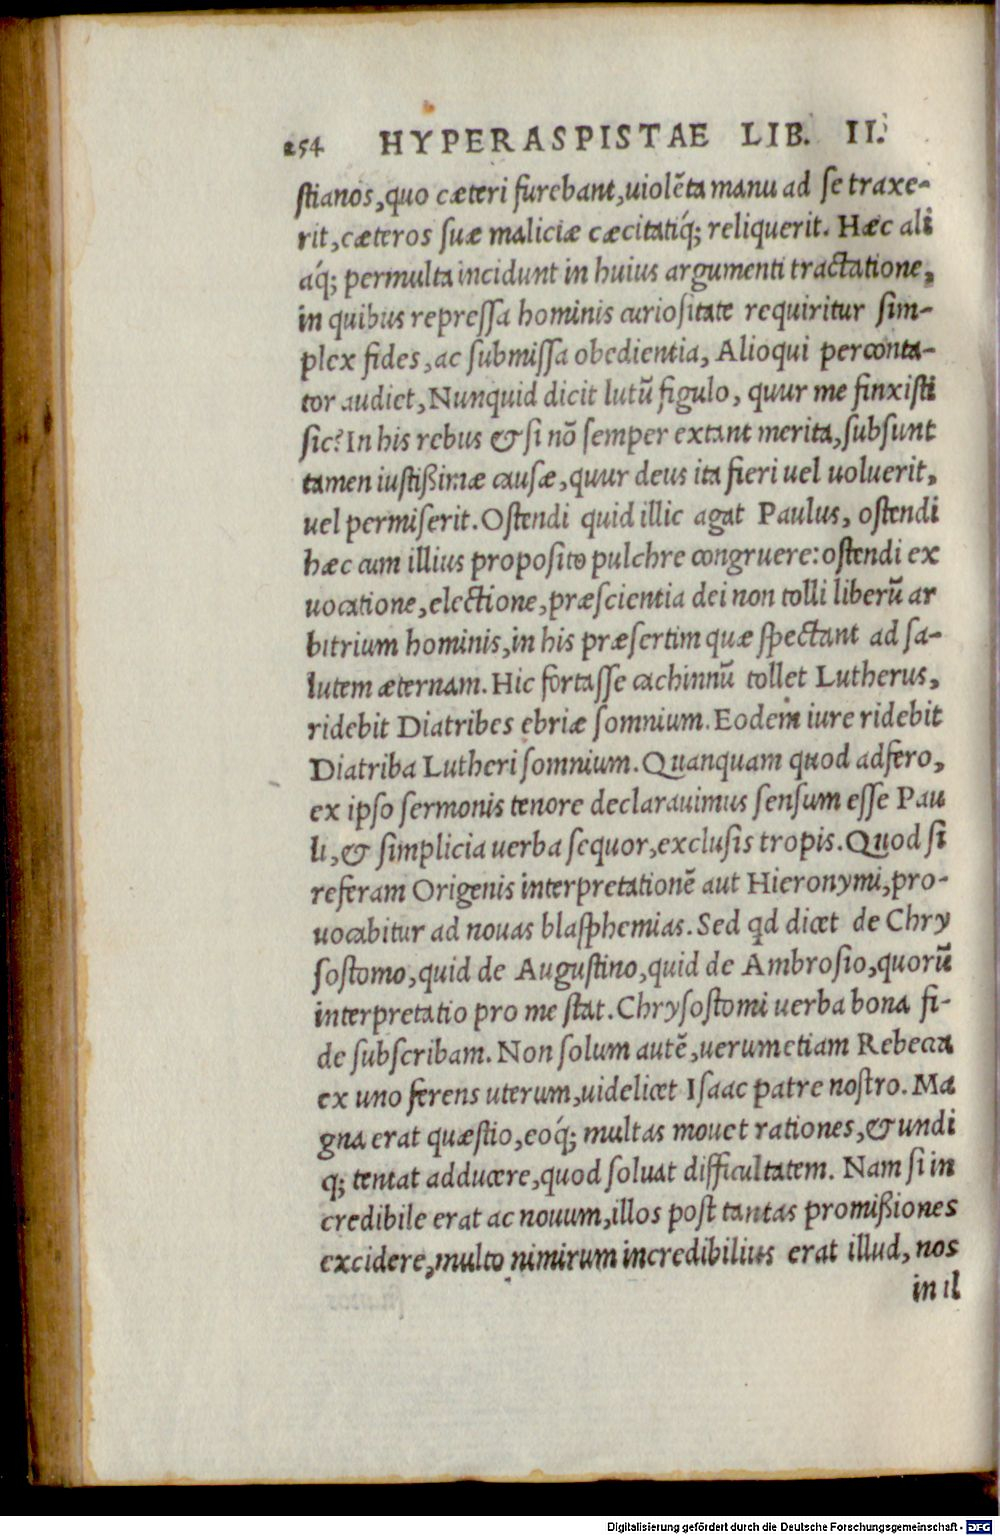 254 HYPERASPISTAE LIB. II.
stianos, quo cæteri furebant, uiolẽta manu ad se traxe-
rit, cæteros suæ maliciæ cæcitatiq́; reliquerit. Hæc ali
aq́; permulta incidunt in huius argumenti tractatione,
in quibus repressa hominis curiositate requiritur sim-
plex fides, ac submissa obedientia, Alioqui perconta-
tor audiet, Nunquid dicit lutũ figulo, quur me finxisti
sic? In his rebus & si nõ semper extant merita, subsunt
tamen iustißimæ causæ, quur deus ita fieri uel uoluerit,
uel permiserit. Ostendi quid illic agat Paulus, ostendi
hæc cum illius proposito pulchre congruere: ostendi ex
uocatione, electione, præscientia dei non tolli liberũ ar
bitrium hominis, in his præsertim quæ spectant ad sa-
lutem æternam. Hic fortasse cachinnũ tollet Lutherus,
ridebit Diatribes ebriæ somnium. Eodem iure ridebit
Diatriba Lutheri somnium. Quanquam quod adfero,
ex ipso sermonis tenore declarauimus sensum esse Pau
li, & simplicia uerba sequor, exclusis tropis. Quod si
referam Origenis interpretationẽ aut Hieronymi, pro-
uocabitur ad nouas blasphemias. Sed qd dicet de Chry
sostomo, quid de Augustino, quid de Ambrosio, quorũ
interpretatio pro me stat. Chrysostomi uerba bona fi-
de subscribam. Non solum autẽ, uerumetiam Rebecca
ex uno ferens uterum, uidelicet Isaac patre nostro. Ma
gna erat quæstio, eoq́; multas mouet rationes, & undi
q; tentat adducere, quod soluat difficultatem. Nam si in
credibile erat ac nouum, illos post tantas promißiones
excidere, multo nimirum incredibilius erat illud, nos
in il
Digitalisierung gefördert durch die Deutsche Forschungsgemeinschaft - DFG